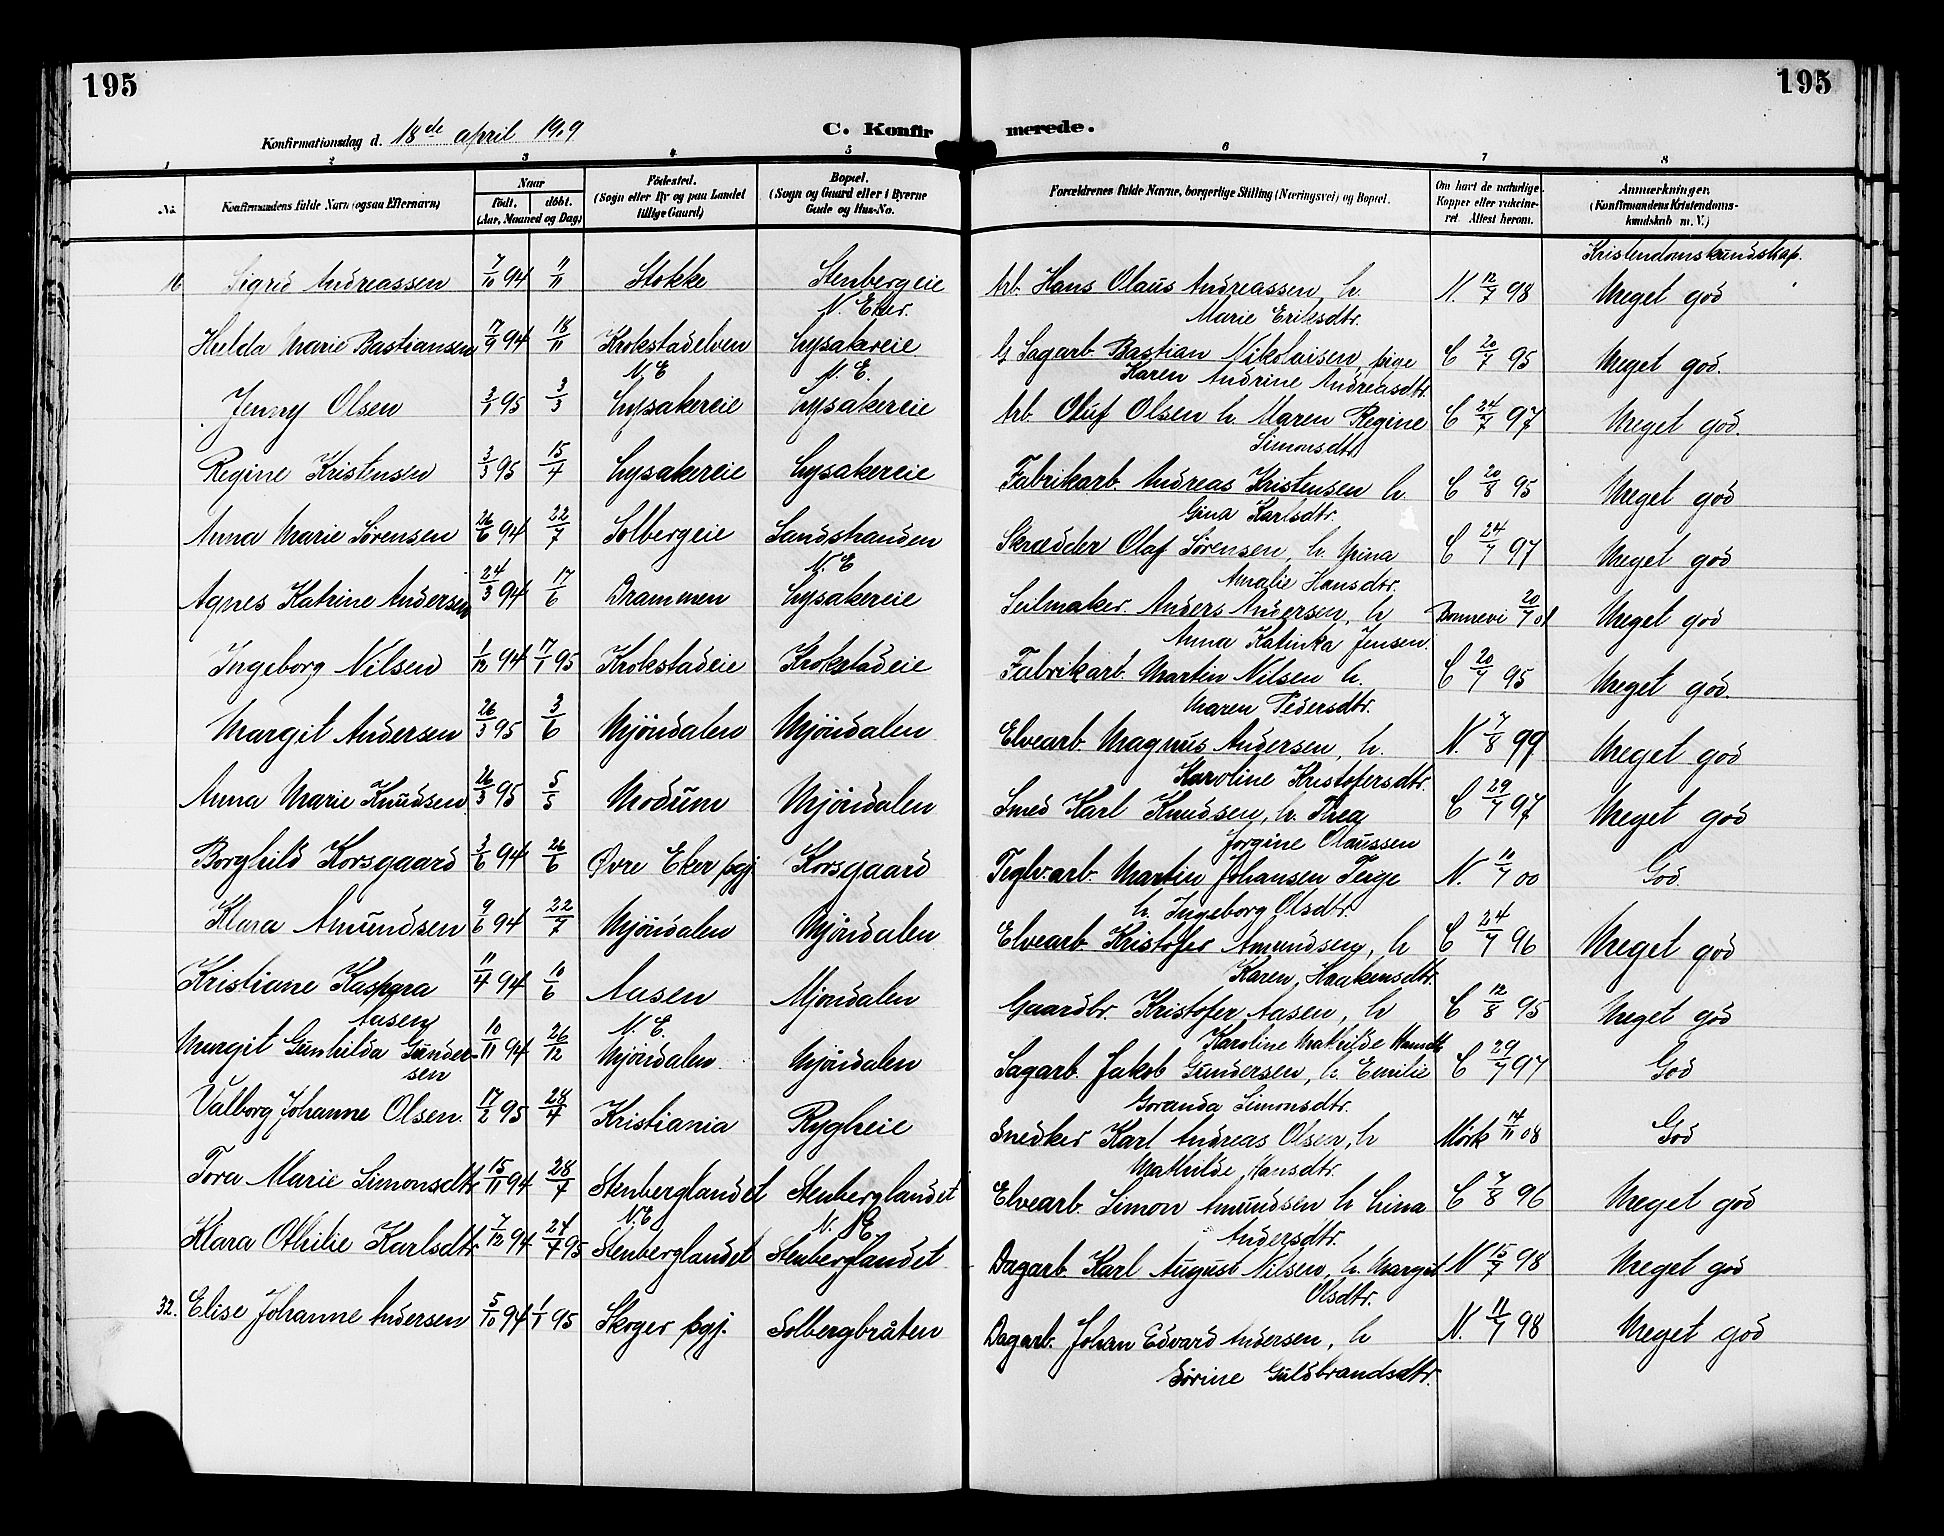 195
195
Konfirmationsdag d. 18de april 1909
C. Konfirmerede.
1 2 3 4 5 6 7 8
No.
Konfirmandens fulde Navn (ogsaa Efternavn)
Naar
født. døbt.
(Aar, Maaned og Dag)
Fødested.
(Sogn eller By og paa Landet
tillige Gaard)
Bopæl.
(Sogn og Gaard eller i Byerne
Gade og Hus-No.
Forældrenes fulde Navne, borgerlige Stilling (Næringsvei) og Bopæl.
Om havt de naturlige
Kopper eller vakcine-
ret. Attest herom.
Anmærkninger.
(Konfirmandens Kristendoms-
kundskab m. V.)
Kristendomskundskap.
16 Sigrid Andreassen 7/10 94 11/11 Stokke Stenbergeie Arb. Hans Olaus Andreassen, h. N. 12/7 98 Meget god
N. Eker. Marie Eriksdtr.
Hulda Marie Bastiansen 17/9 94 18/11 Krokstadelven Lysakereie Sagarb. Bastian Nikolaisen, pige C 20/7 95 Meget god.
N. E N. E. Karen Andrine Andreasdtr.
Jenny Olsen 3/1 95 3/3 Lysakereie Lysakereie Arb. Oluf Olsen h. Maren Regine C 24/7 97 Meget god.
Simonsdtr
Regine Kristensen 3/3 95 15/4 Lysakereie Lysakereie Fabrikarb. Andreas Kristensen h. C 20/8 95 Meget god
Gina Karlsdtr.
Anna Marie Sørensen 26/6 94 22/7 Solbergeie Sandstranden Skrædder Olaf Sørensen, h. Nina C 24/7 97 Meget god
N. E Amalie Hansdtr.
Agnes Katrine Andersen 24/3 94 17/6 Drammen Lysakereie Seilmaker. Anders Andersen, h Bonnevi 20/7 01 Meget god
Anna Katinka Jensen.
Ingeborg Nilsen 1/12 94 17/1 95 Krokstadeie Krokstadeie Fabrikarb. Martin Nilsen h. C 20/7 95 Meget god.
Maren Pedersdtr.
Margit Andersen 26/3 95 3/6 Mjöndalen Mjöndalen Elvearb. Magnus Andersen, h. N. 7/8 99 Meget god
Karoline Kristofersdtr.
Anna Marie Knudsen 26/3 95 5/5 Modum Mjöndalen Smed Karl Knudsen, h. Thea C 29/7 97 Meget god
Jorgine Olaussen
Borghild Korsgaard 3/6 94 26/6 Øvre Eker pgj. Korsgaard Teglv.arb. Martin Johansen Teige N. 10/7 00 God.
h. Ingeborg Olsdtr.
Klara Amundsen 9/6 94 22/7 Mjöndalen Mjöndalen Elvearb. Kristofer Amundsen, h C 24/7 96 Meget god
Karen Haakensdtr.
Kristiane Kaspara 11/4 94 10/6 Aasen Mjöndalen Gaardbr Kristofer Aasen, h C 12/8 95 Meget god
Aasen N. E. Karoline Mathilde
Margit Gunhilda Gunder- 10/11 94 26/12 Mjöndalen. Mjöndalen Sagarb. Jakob Gundersen, h. Emilie C 29/7 97 God
sen Goranda Simonsdtr.
Valborg Johanne Olsen. 17/2 95 28/4 Kristiania Rygheie Snedker Karl Andreas Olsen, h Mørk 14/11 08 God
Mathilde Hansdtr.
Tora Marie Simonsdtr 15/11 94 28/7 Stenberglandet Stenberglandet Elvearb. Simon Amundsen h Lina C 7/8 96 Meget god
N. E N. E. Andersdtr.
Klara Othilie Karlsdtr 7/12 94 24/7 95 Stenberglandet Stenberglandet Dagarb. Karl August Nilsen, h. Margit N 15/7 98 Meget god
Olsdtr.
32. Elise Johanne Andersen 5/10 94 1/1 95 Skoger pgj. Solbergbråten Dagarb. Johan Edvard Andersen, h N. 11/7 98 Meget god
Sörine Guldbrandsdtr.